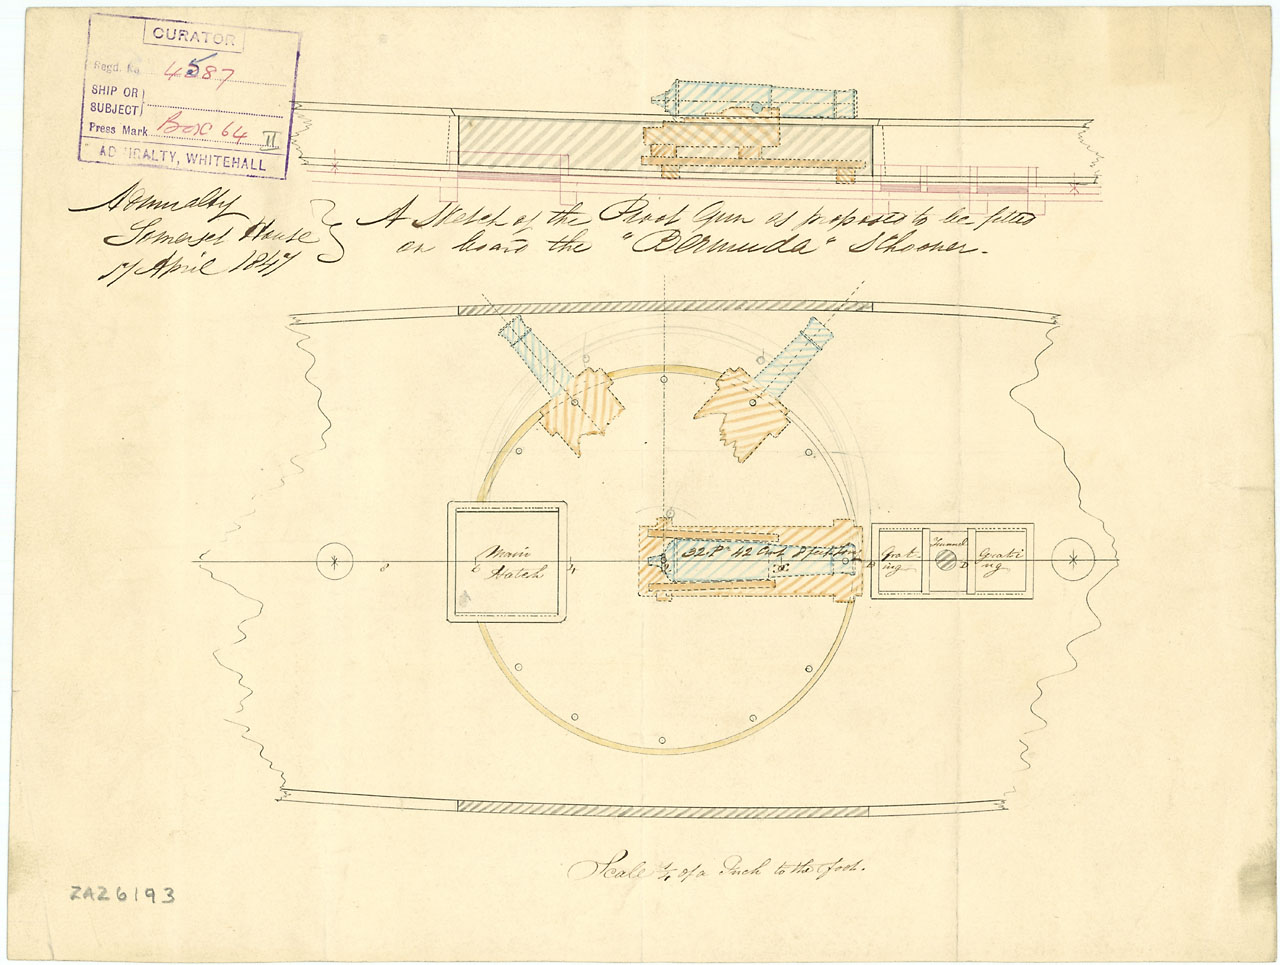 CURATOR
Regd. No. 4587
SHIP OR
SUBJECT
Press Mark Box 64 II
ADMIRALTY, WHITEHALL
Admualty
Somerset House
17 April 1847
A Sketch of the Pivot Gun as proposed to be fitted
on board the "Bermuda" Schooner.
Main
Hatch
32 Pr 42 Cwt 8 feet
Grat
ing
Funnel
Grati
ng
Scale 1/4 of a Inch to the foot.
ZAZ6193